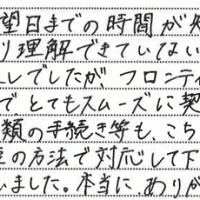 望日までの時間が
り理解できていない
しでしたが、フロンティ
で とてもスムーズに契
類の手続き等も、こち
の方法で対応して下
ました。本当に、ありが